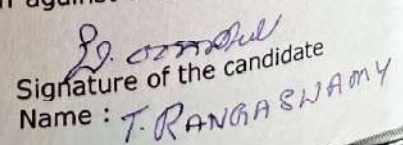 n against
Signature of the candidate
Name : T. RANGASWAMY